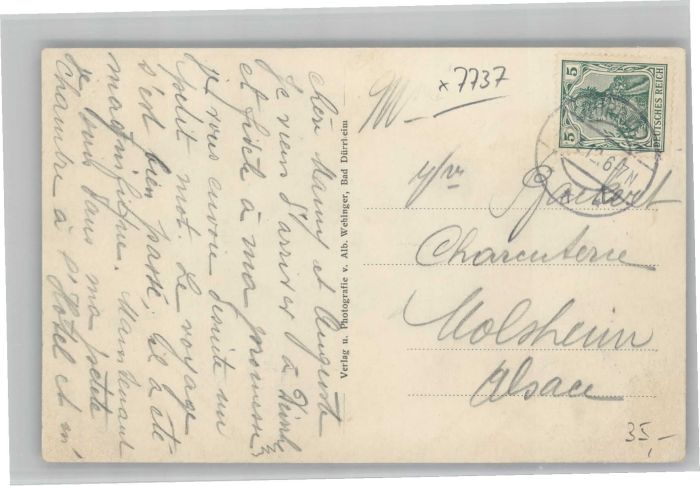 chère Mamy et Auguste
Je viens d'arriver à
et fidèle à ma promesse
je vous envoie desuite un
petit mot. Le voyage
s'est bien passé, il a été
magnifique. Maintenant
je suis dans ma petite
chambre à l'Hotel et
Verlag u. Photografie v. Alb. Wehinger, Bad Dürrheim
x 7737
M
5
5
DEUTSCHES REICH
Charcuterie
Molsheim
Alsace
35,-